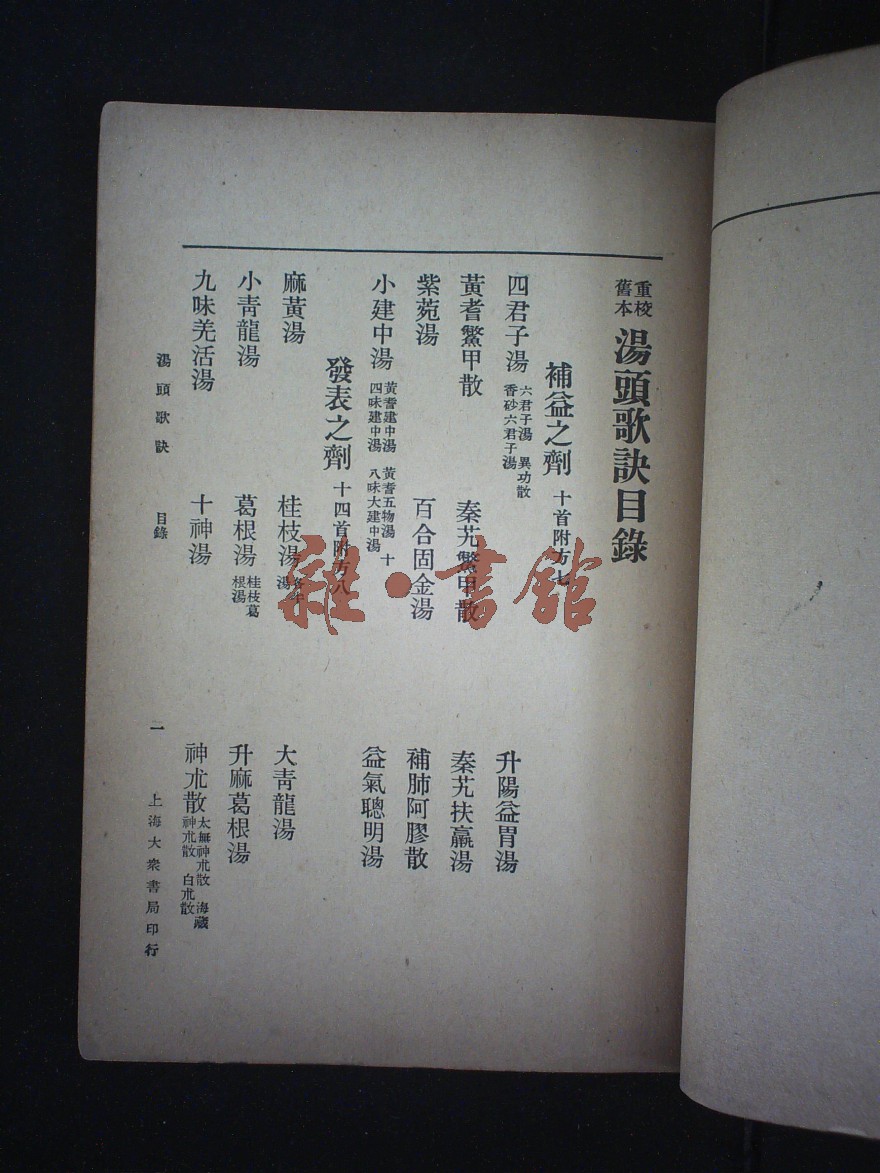 重校舊本 湯頭歌訣目錄
補益之劑 十首附方七
四君子湯 六君子湯 異功散 香砂六君子湯 升陽益胃湯
黃耆鱉甲散 秦艽鱉甲散 秦艽扶羸湯
紫菀湯 百合固金湯 補肺阿膠散
小建中湯 黃耆建中湯 黃耆五物湯 十四味建中湯 八味大建中湯 益氣聰明湯
發表之劑 十四首附方八
麻黃湯 桂枝湯 各半湯 大青龍湯
小青龍湯 葛根湯 桂枝葛根湯 升麻葛根湯
九味羌活湯 十神湯 神朮散 太無神朮散 海藏神朮散 白朮散
湯頭歌訣 目錄 一 上海大衆書局印行
雜·書館